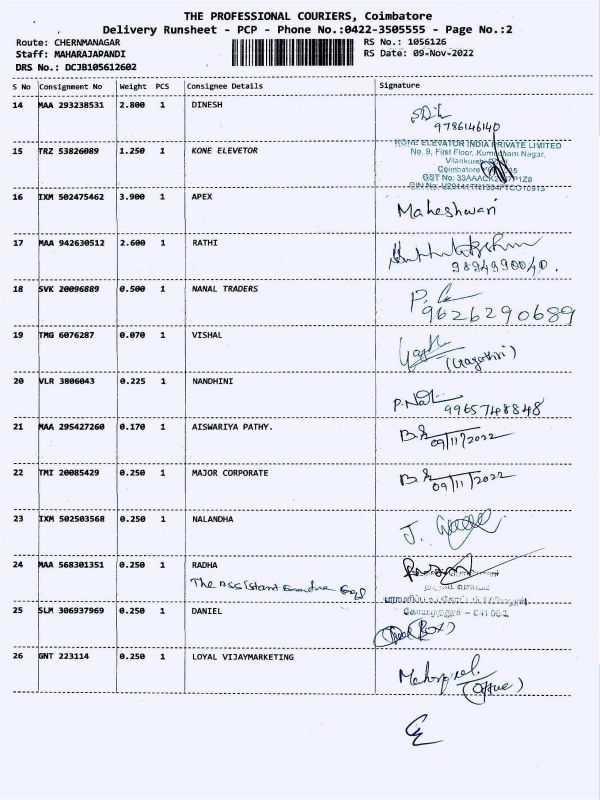 THE PROFESSIONAL COURIERS, Coimbatore
Delivery Runsheet - PCP - Phone No.:0422-3505555 - Page No.:2
Route: CHERNMANAGAR RS No.: 1056126
Staff: MAHARAJAPANDI RS Date: 09-Nov-2022
DRS No.: DCJB105612602
S No Consignment No Weight PCS Consignee Details Signature
14 MAA 293238531 2.800 1 DINESH
9786146140
KONE ELEVATOR INDIA PRIVATE LIMITED
15 TRZ 53826089 1.250 1 KONE ELEVETOR No. 9, First Floor, Nagar,
Coimbatore
GST No: 33AAAC
16 IXM 502475462 3.900 1 APEX
Maheshwari
17 MAA 942630512 2.600 1 RATHI
9894990040.
18 SVK 20096889 0.500 1 NANAL TRADERS
9626290689
19 TMG 6076287 0.070 1 VISHAL
(Gayathri)
20 VLR 3806043 0.225 1 NANDHINI
9965748848
21 MAA 295427260 0.170 1 AISWARIYA PATHY.
09/11/2022
22 TMI 20085429 0.250 1 MAJOR CORPORATE
09/11/2022
23 IXM 502503568 0.250 1 NALANDHA
24 MAA 568301351 0.250 1 RADHA
The Assistant
25 SLM 306937969 0.250 1 DANIEL
(Box)
26 GNT 223114 0.250 1 LOYAL VIJAYMARKETING